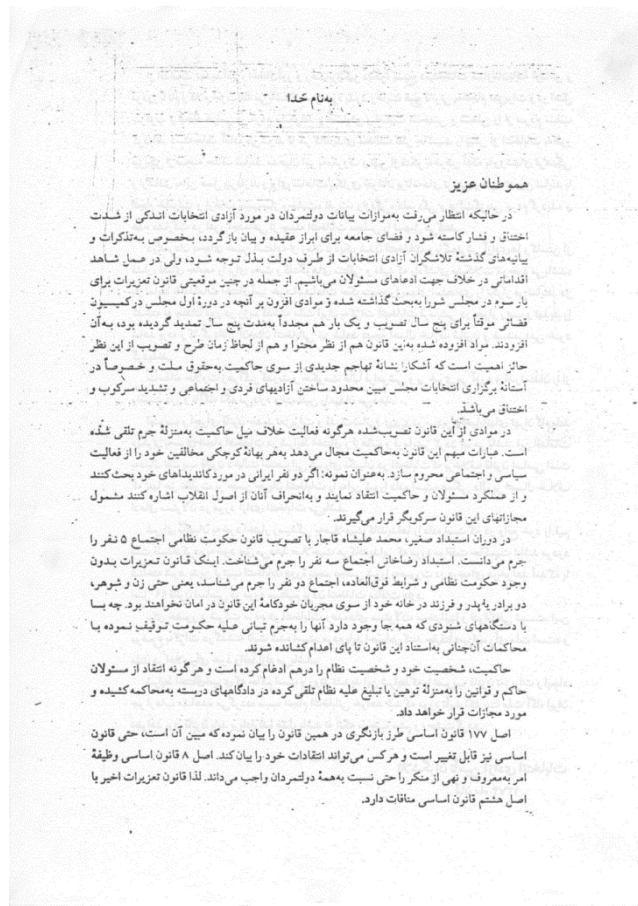 به‌نام خدا
هموطنان عزیز
در حالیکه انتظار می‌رفت به‌موازات بیانات دولتمردان در مورد آزادی انتخابات اندکی از شدت
اختناق و فشار کاسته شود و فضای جامعه برای ابراز عقیده و بیان بازگردد، بخصوص به‌تذکرات و
بیانیه‌های گذشتهٔ تلاشگران آزادی انتخابات از طرف دولت بذل توجه شود، ولی در عمل شاهد
اقداماتی در خلاف جهت ادعاهای مسئولان می‌باشیم. از جمله در چنین موقعیتی قانون تعزیرات برای
بار سوم در مجلس شورا به‌بحث گذاشته شده و موادی افزون بر آنچه در دورهٔ اول مجلس در کمیسیون
قضائی موقتاً برای پنج سال تصویب و یک بار هم مجدداً به‌مدت پنج سال تمدید گردیده بود، به‌آن
افزودند. مواد افزوده شده به‌این قانون هم از نظر محتوا و هم از لحاظ زمان طرح و تصویب از این نظر
حائز اهمیت است که آشکارا نشانهٔ تهاجم جدیدی از سوی حاکمیت به‌حقوق ملت و خصوصاً در
آستانهٔ برگزاری انتخابات مجلس مبین محدود ساختن آزادیهای فردی و اجتماعی و تشدید سرکوب و
اختناق می‌باشد.
در موادی از این قانون تصویب‌شده هرگونه فعالیت خلاف میل حاکمیت به‌منزلهٔ جرم تلقی شده
است. عبارات مبهم این قانون به‌حاکمیت مجال می‌دهد به‌هر بهانهٔ کوچکی مخالفین خود را از فعالیت
سیاسی و اجتماعی محروم سازد. به‌عنوان نمونه: اگر دو نفر ایرانی در مورد کاندیداهای خود بحث کنند
و از عملکرد مسئولان و حاکمیت انتقاد نمایند و به‌انحراف آنان از اصول انقلاب اشاره کنند مشمول
مجازاتهای این قانون سرکوبگر قرار می‌گیرند.
در دوران استبداد صغیر، محمد علیشاه قاجار با تصویب قانون حکومت نظامی اجتماع ۵ نفر را
جرم می‌دانست. استبداد رضاخانی اجتماع سه نفر را جرم می‌شناخت. اینک قانون تعزیرات بدون
وجود حکومت نظامی و شرایط فوق‌العاده، اجتماع دو نفر را جرم می‌شناسد، یعنی حتی زن و شوهر،
دو برادر یا پدر و فرزند در خانه خود از سوی مجریان خودکامهٔ این قانون در امان نخواهند بود. چه بسا
با دستگاههای شنودی که همه جا وجود دارد آنها را به‌جرم تبانی علیه حکومت توقیف نموده با
محاکمات آن‌چنانی به‌استناد این قانون تا پای اعدام کشانده شوند.
حاکمیت، شخصیت خود و شخصیت نظام را درهم ادغام کرده است و هرگونه انتقاد از مسئولان
حاکم و قوانین را به‌منزلهٔ توهین یا تبلیغ علیه نظام تلقی کرده در دادگاههای دربسته به‌محاکمه کشیده و
مورد مجازات قرار خواهد داد.
اصل ۱۷۷ قانون اساسی طرز بازنگری در همین قانون را بیان نموده که مبین آن است، حتی قانون
اساسی نیز قابل تغییر است و هر کس می‌تواند انتقادات خود را بیان کند. اصل ۸ قانون اساسی وظیفهٔ
امر به‌معروف و نهی از منکر را حتی نسبت به‌همهٔ دولتمردان واجب می‌داند. لذا قانون تعزیرات اخیر با
اصل هشتم قانون اساسی منافات دارد.